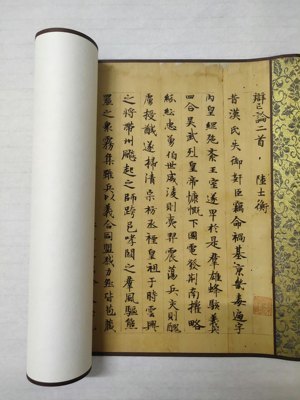 辯亡論二首 陸士衡
昔漢氏失御奸臣竊命禍基京畿毒遍宇
內皇綱弛紊王室遂卑於是羣雄蜂駭義兵
四合吳武烈皇帝慷慨下國電發荊南權略
紛紜忠勇伯世威稜則夷羿震蕩兵交則醜
虜授馘遂掃清宗祊蒸禋皇祖于時雲興
之將帶州飈起之師跨邑哮闞之羣風驅熊
羆之衆霧集雖兵以義合同盟戮力然皆苞藏